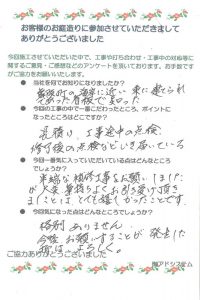 お客様のお庭造りに参加させていただきまして
ありがとうございました
今回施工させていただいた中で、工事や打ち合わせ・工事中の対応等に
関するご意見・ご感想などのアンケートを頂いております。お手数です
がご協力をお願いいたします。
● 当社を何でお知りになりましたか?
に近い
あった看板で知った
● 今回の工事の中で一番こだわったところ、ポイントに
なったところはどこですか?
見積り、工事途中の点検、
修了後の点検などしき届いている
● 今回一番気に入っていただいている点はどんなところ
でしょうか?
補修工事をお願いしました
が大変気持ちよくお引き受け頂き
ましたことは、とても嬉しかったことです。
● 今回気になった点はどんなところでしょうか?
格別ありません
今後お願いすることが発生した
よろしく。
ご協力ありがとうございました
㈲アドシステム